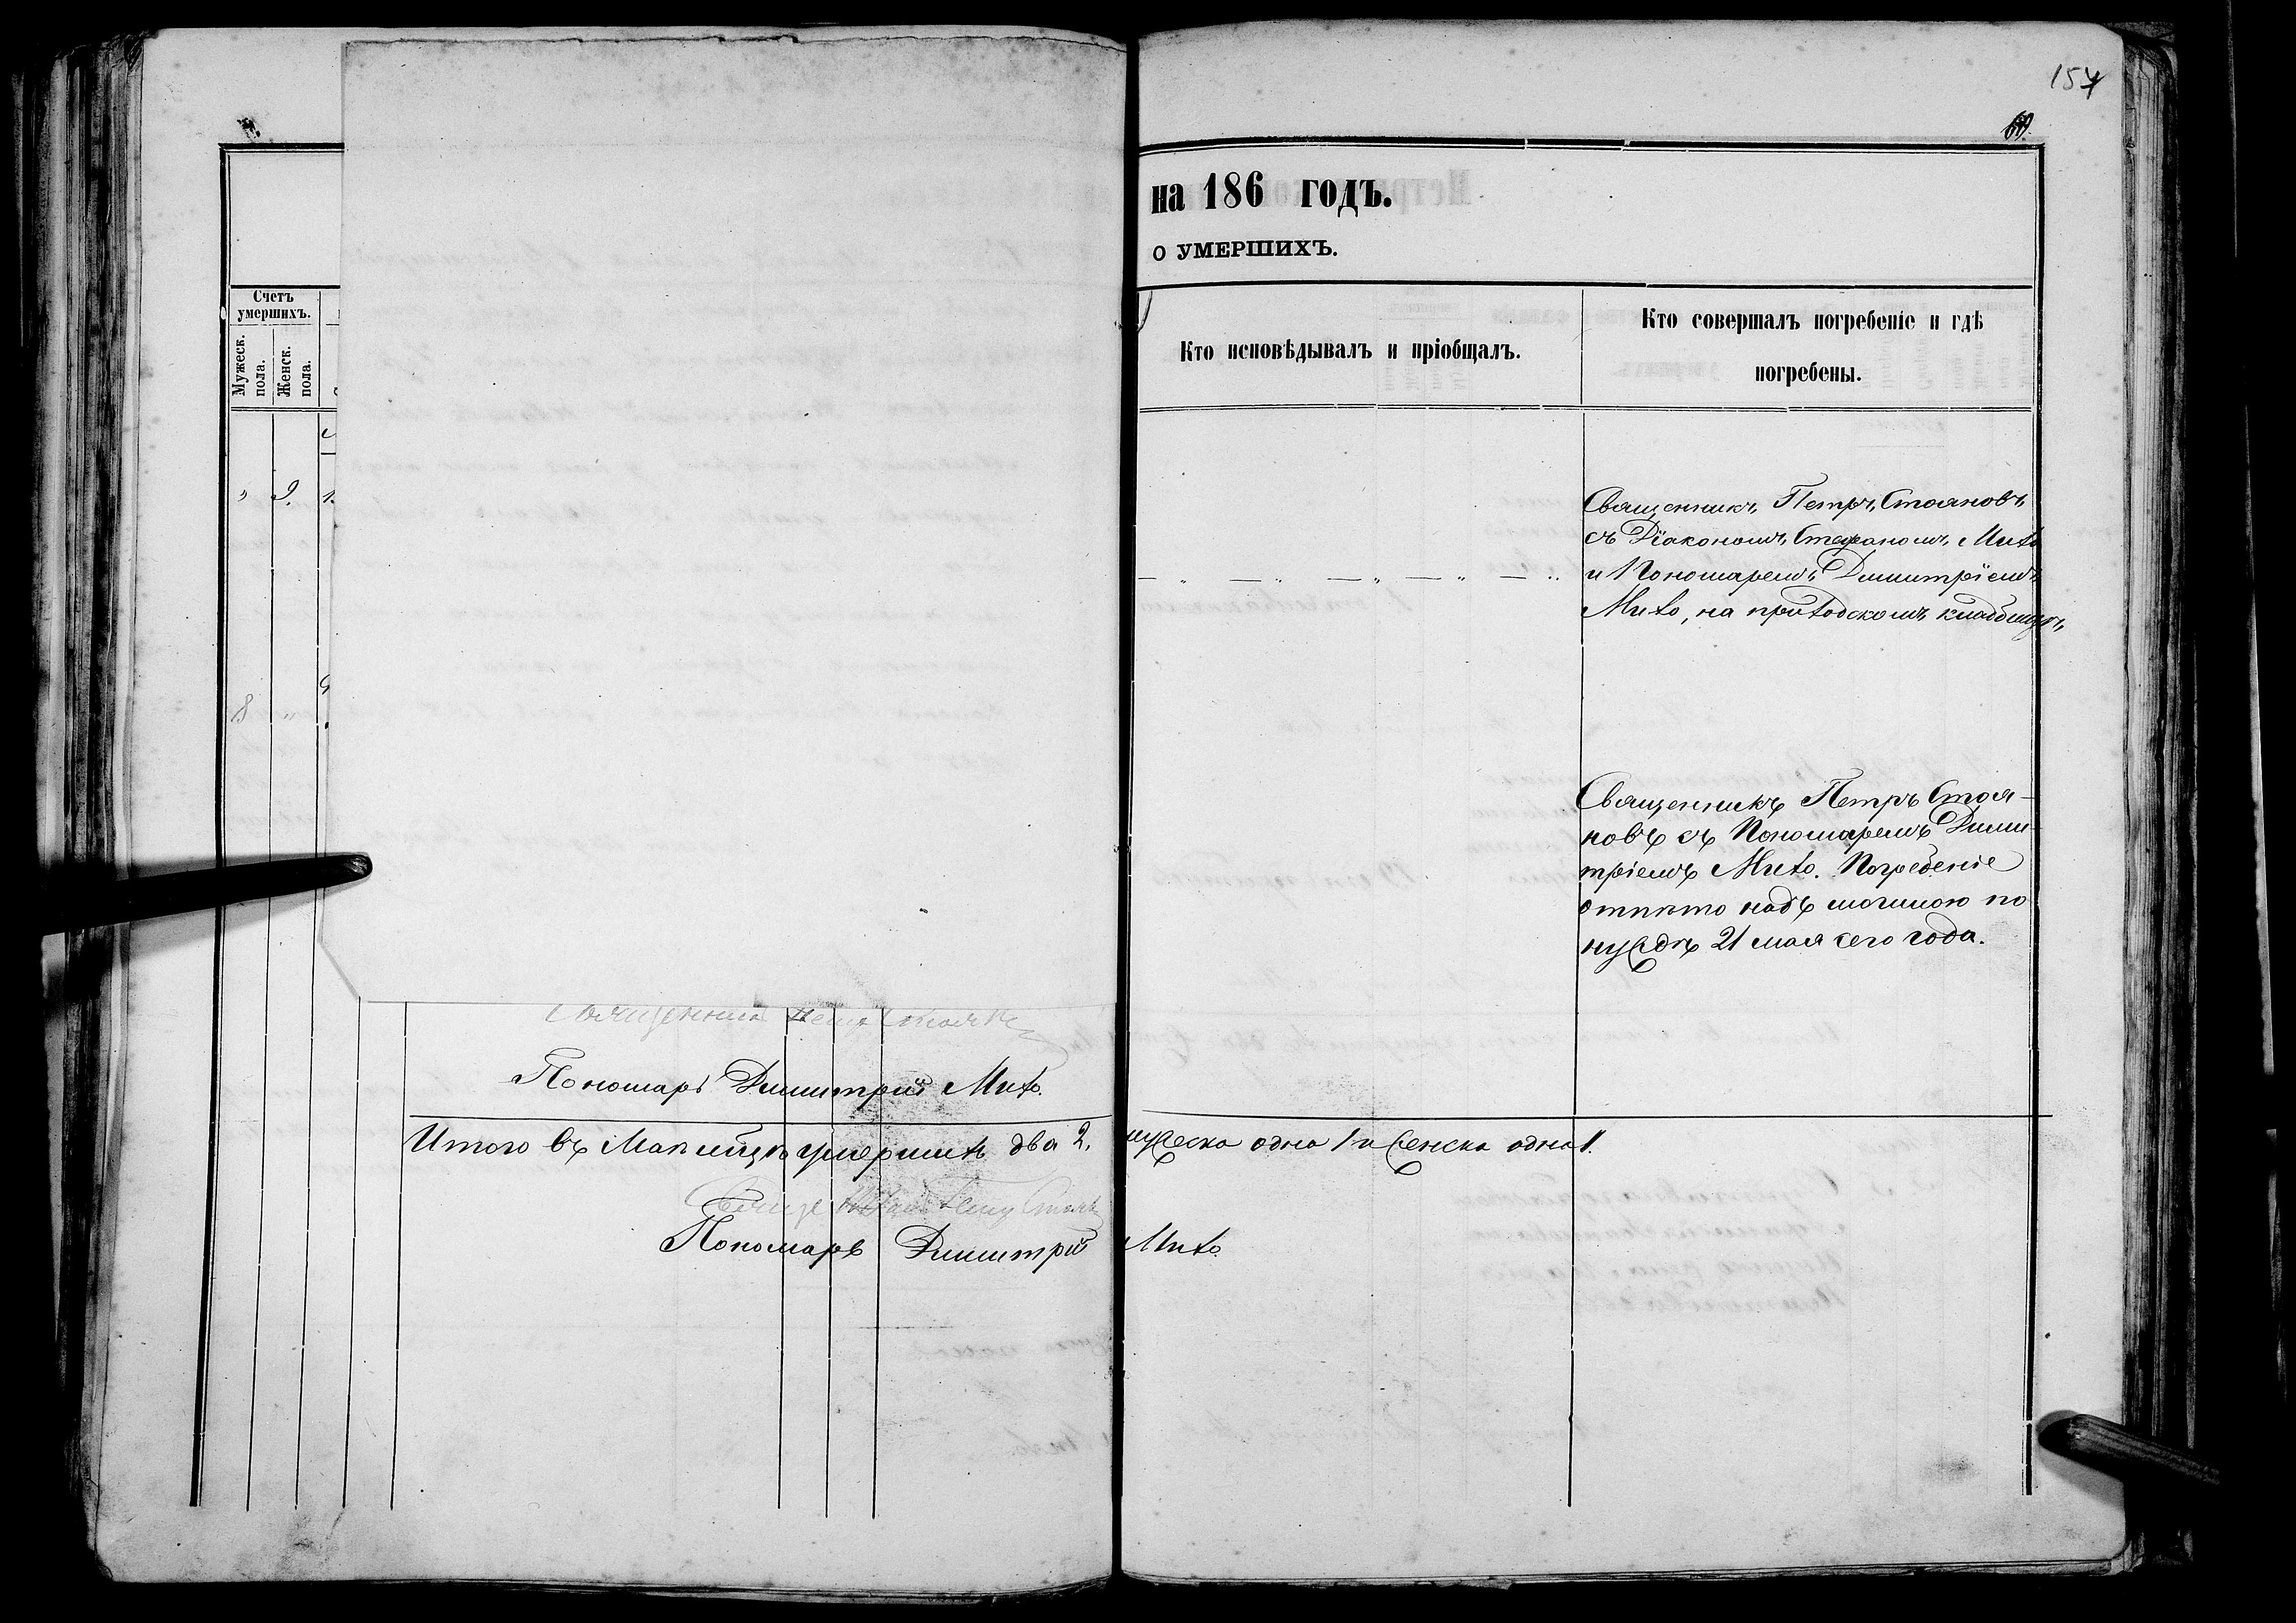 157
69.
на 186 годъ.
о УМЕРШИХЪ.
Счетъ
умершихъ.
Мужеск.
пола.
Женск.
пола.
Кто исповѣдывалъ и пріобщалъ.
Кто совершалъ погребеніе и гдѣ
погребены.
" 9. 1.
Священникъ Петръ Стояновъ
съ Діакономъ Стефаномъ Михо
и Пономаремъ Димитріемъ
Михо, на приходскомъ кладбищѣ,
8 "
Священникъ Петръ Стоя-
новъ съ Пономаремъ Дими-
тріемъ Михо. Погребеніе
отпѣто надъ могилою по
нуждѣ 21 мая сего года.
Священникъ Петръ
Пономарь Димитрій Михо.
Итого въ Маѣ мѣсяцѣ умершихъ два 2. мужеска одна 1 и женска одна 1.
Пономарь Димитрій Михо.